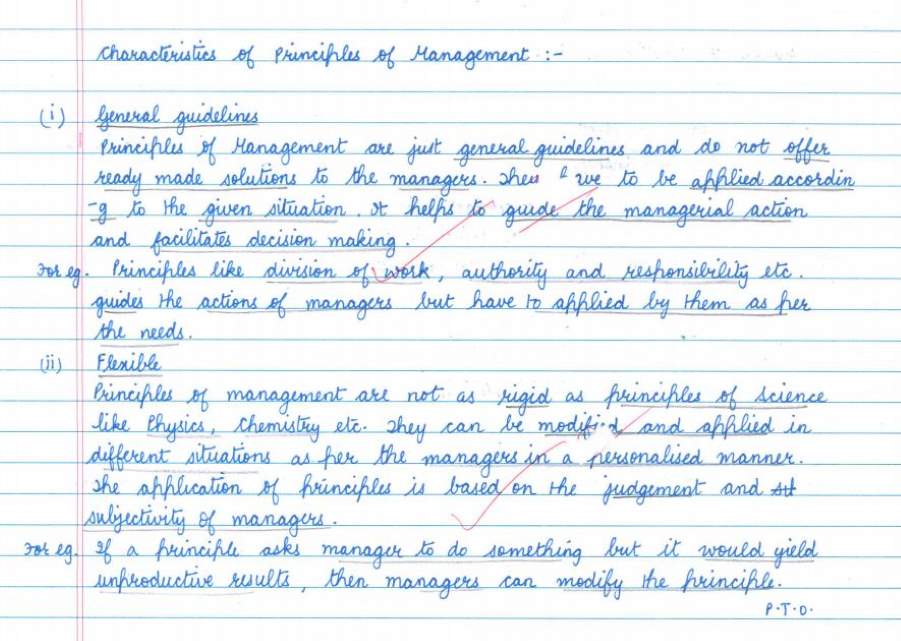 Characteristics of Principles of Management :-
(i) General guidelines
Principles of Management are just general guidelines and do not offer
ready made solutions to the managers. They we to be applied accordin
-g to the given situation. It helps to guide the managerial action
and facilitates decision making.
For eg. Principles like division of work, authority and responsibility etc.
guides the actions of managers but have to applied by them as per
the needs.
(ii) Flexible
Principles of management are not as rigid as principles of science
like Physics, Chemistry etc. They can be modified and applied in
different situations as per the managers in a personalised manner.
The application of principles is based on the judgement and
subjectivity of managers.
For eg. If a principle asks manager to do something but it would yield
unproductive results, then managers can modify the principle.
P.T.O.